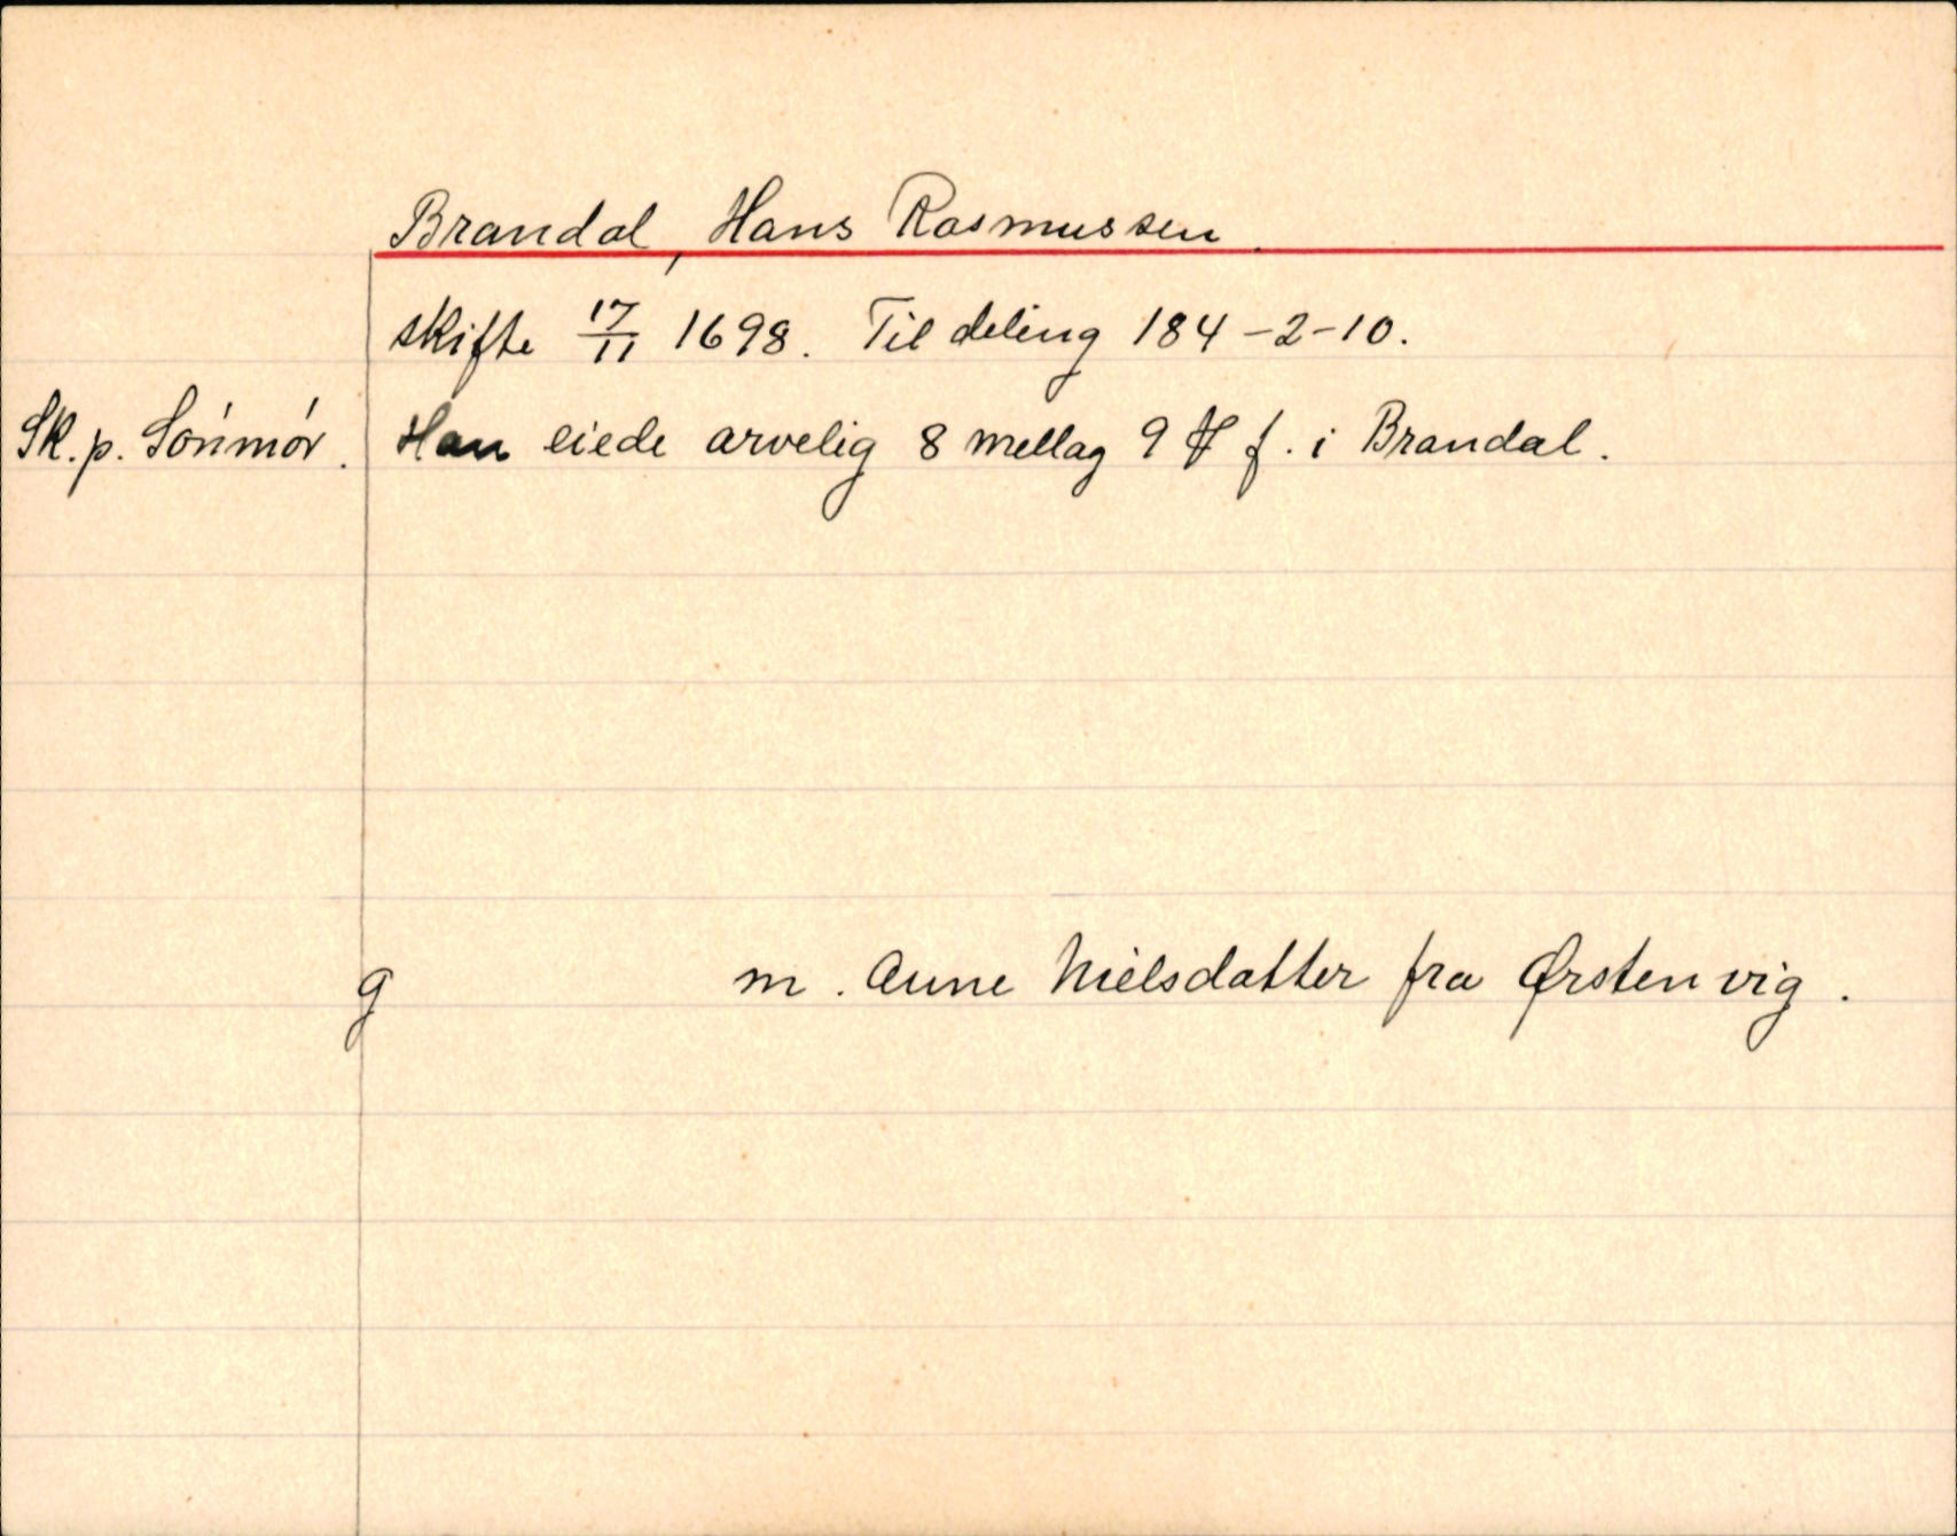 Brandal, Hans Rasmussen.
skifte 17/11 1698. Til deling 184-2-10.
Sk. p. Sörimör. Han eiede arvelig 8 mellag 9 ℔ f. i Brandal.
g m. Anne Nielsdatter fra Ørstenvig.